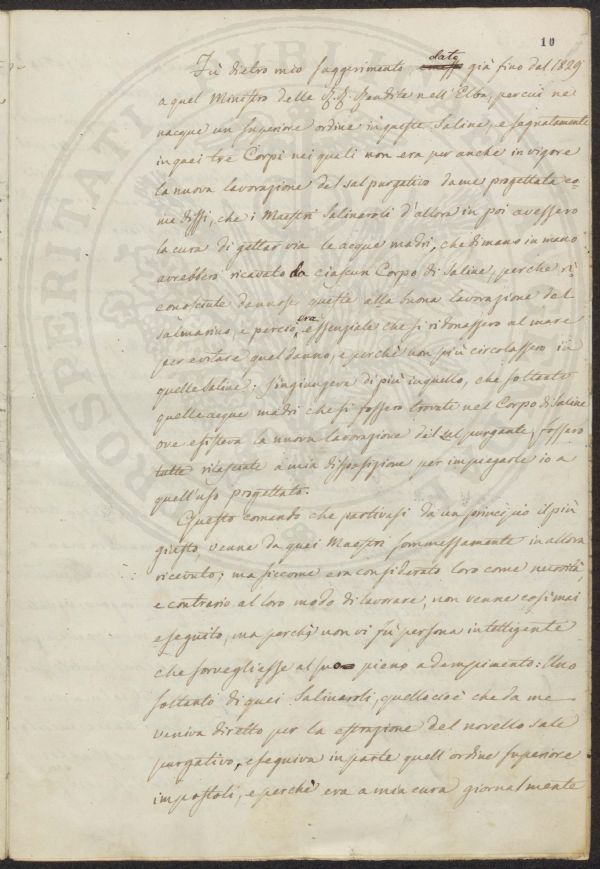 10
Fù dietro mio suggerimento dato già fino dal 1829
a quel Ministro delle RR. Rendite nell'Elba, percui ne
nacque un superiore ordine in queste Saline, e segnatamente
in quei tre Corpi nei quali non era per anche in vigore
la nuova lavorazione del sal purgativo da me progettata co=
me dissi, che i Maestri Salinaroli d'allora in poi avessero
la cura di gettar via le acque madri, che di mano in mano
avrebbero ricavato da ciascun Corpo di Saline, perche ri=
conosciute dannose queste alla buona lavorazione del
sal marino, e perciò era essenziale che si ridonassero al mare
per evitare quel danno, e perchè non più circolassero in
quelle Saline: s'ingiungeva di più in quello, che soltanto
quelle acque madri che si fossero trovate nel Corpo di Saline
ove esisteva la nuova lavorazione del sal purgante, fossero
tutte rilasciate a mia disposizione per impiegarle io a
quell'uso progettato.
Questo comando che partivasi da un principio il più
giusto venne da quei Maestri sommessamente in allora
ricevuto; ma siccome era considerato loro come novità,
e contrario al loro modo di lavorare, non venne così mai
eseguito, ma perchè non vi fù persona intelligente
che sorvegliesse al suo pieno adempimento: Uno
soltanto di quei Salinaroli, quello cioè che da me
veniva diretto per la estrazione del novello sale
purgativo, eseguiva in parte quell'ordine superiore
impostoli, e perchè era a mia cura giornalmente
PROSPERITATI